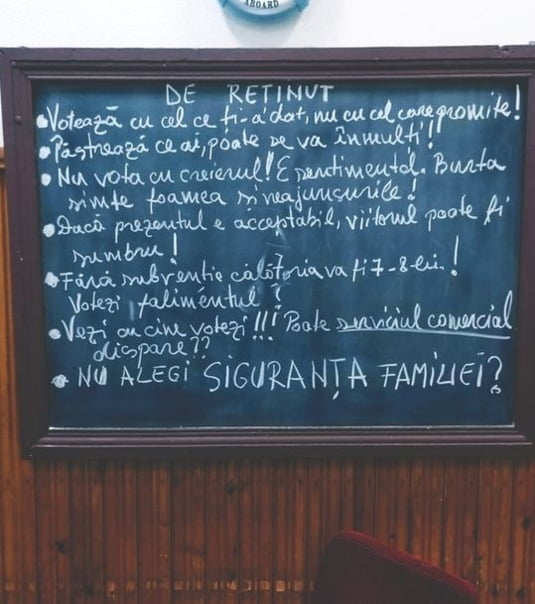 ABOARD
DE REȚINUT
• Votează cu cel ce ți-a dat, nu cu cel care promite!
• Păstrează ce ai, poate se va înmulți!!
• Nu vota cu creierul! E sentimental. Burta
simte foamea și neajunsurile!
• Dacă prezentul e acceptabil, viitorul poate fi
sumbru!
• Fără subvenție călătoria va fi 7-8 lei.!
Votezi falimentul?
• Vezi cu cine votezi!!! Poate serviciul comercial
dispare??
• NU ALEGI SIGURANȚA FAMILIEI?